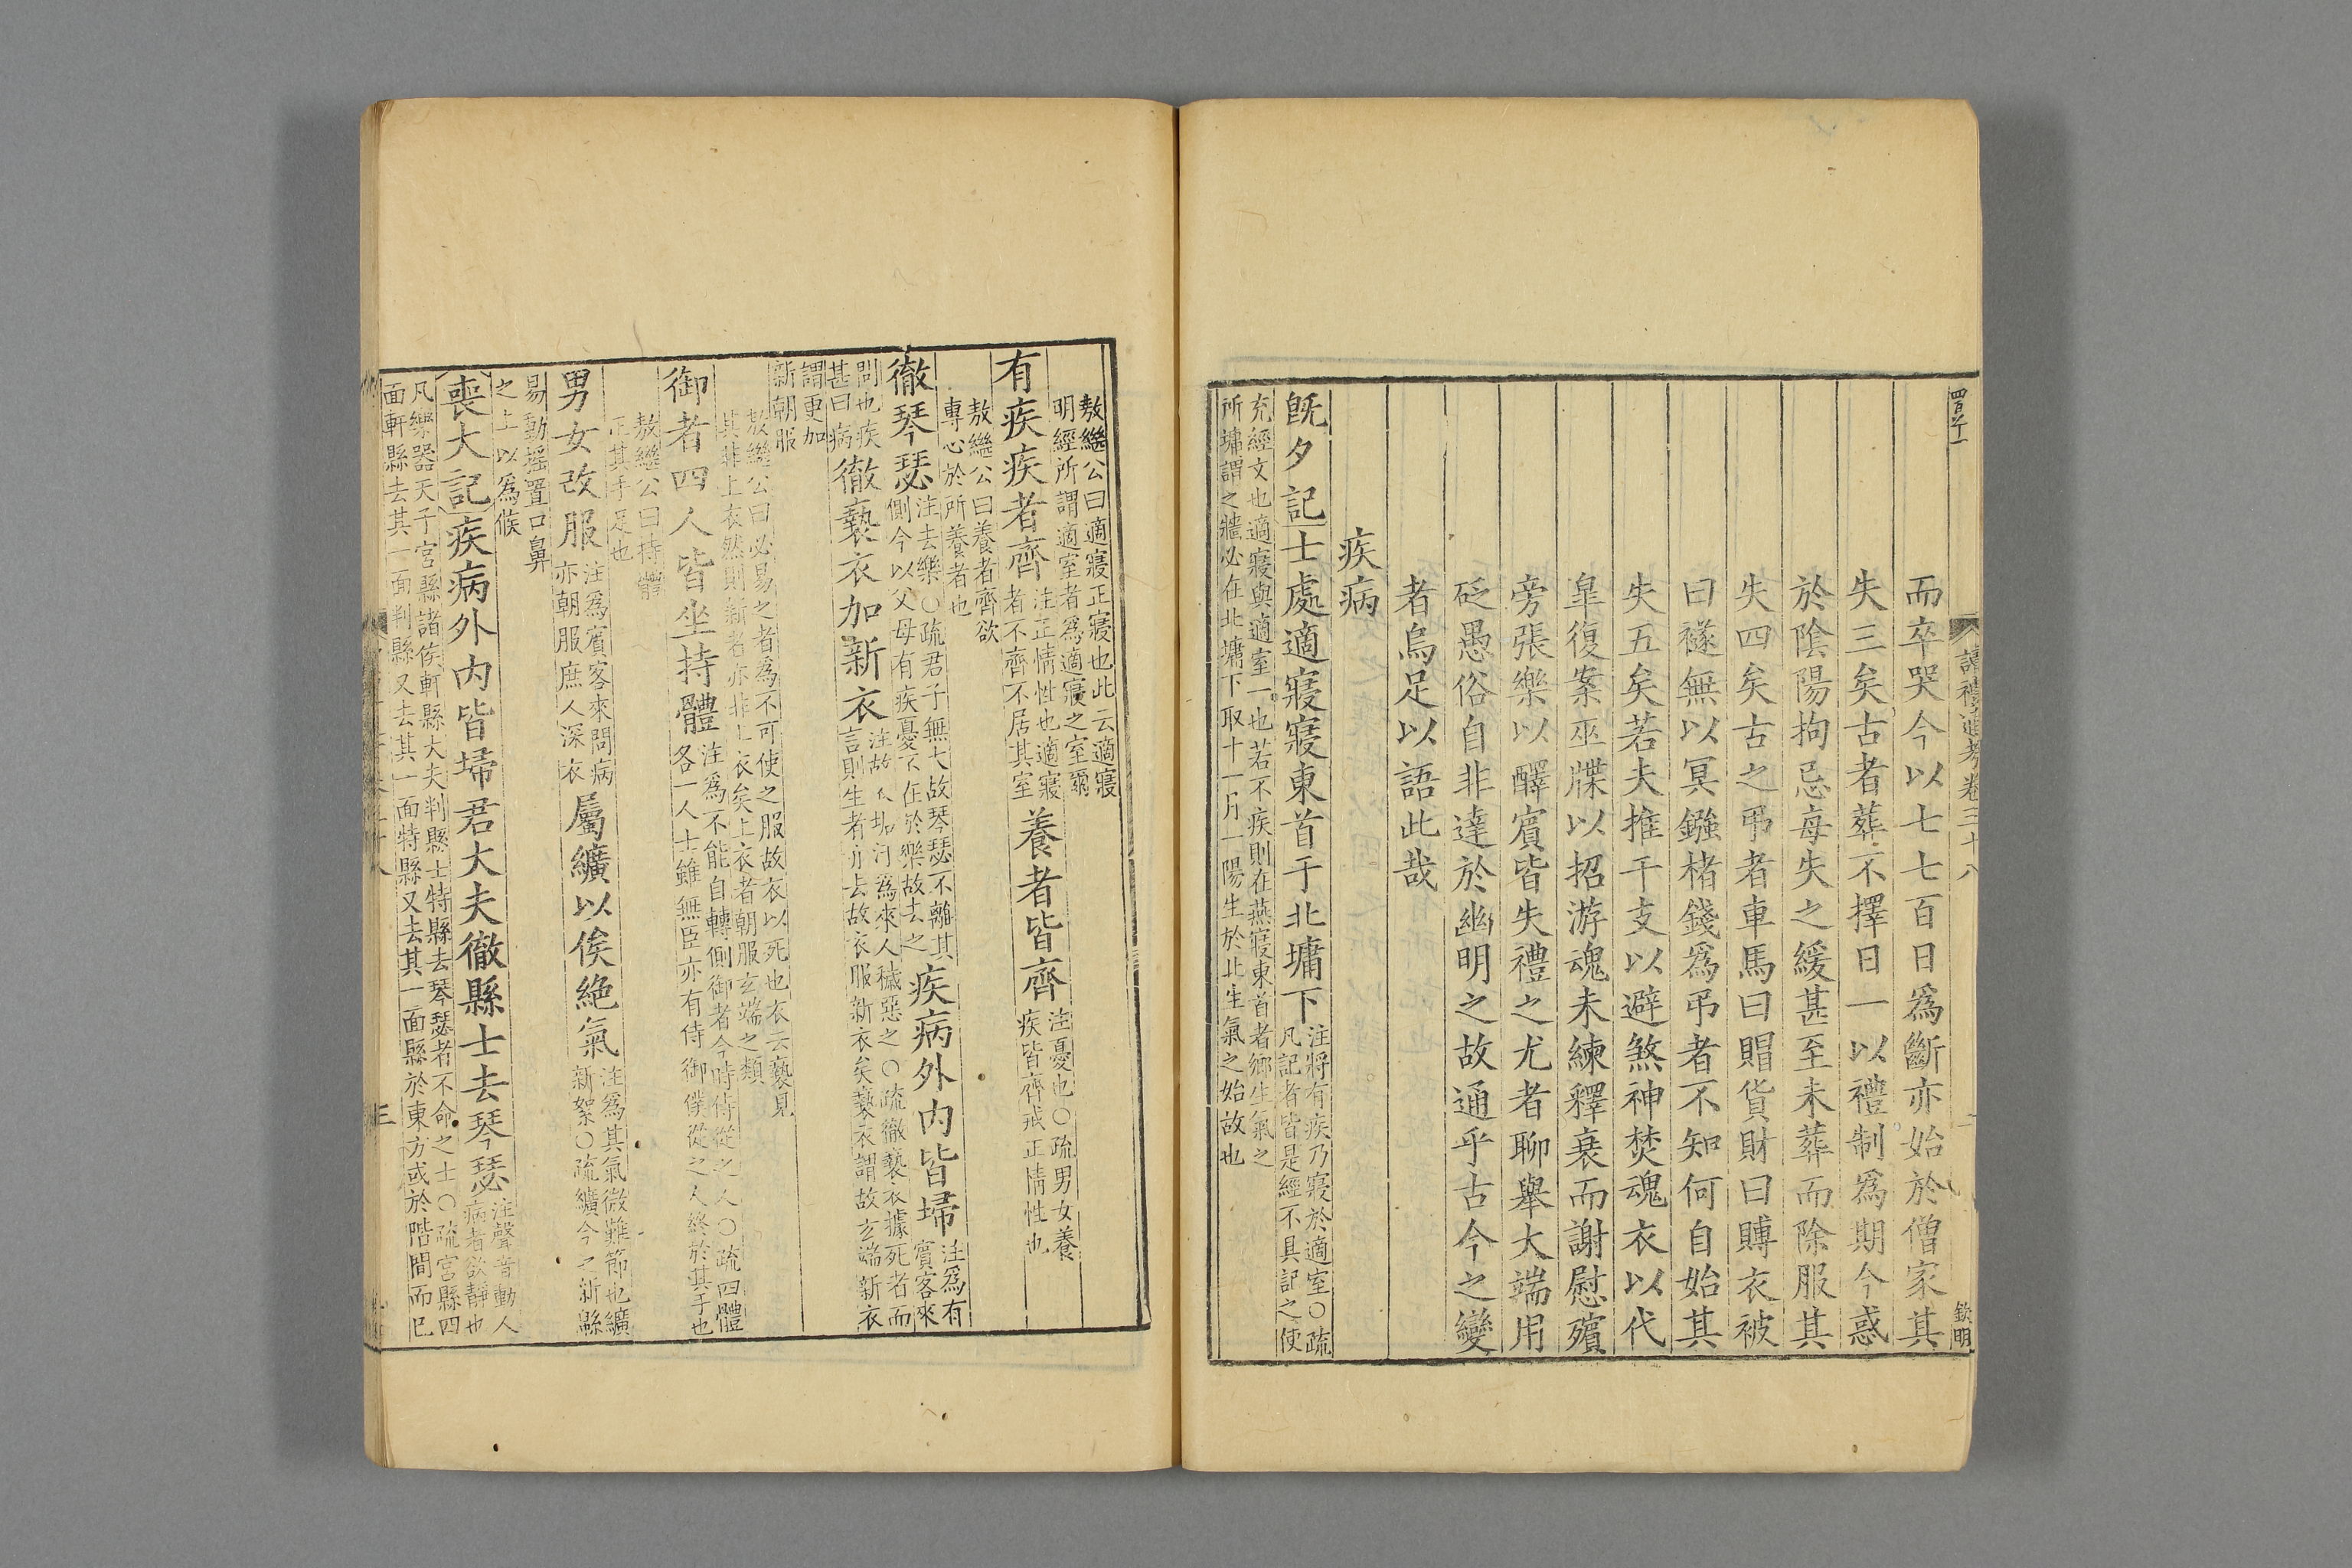 讀禮通考卷三十八
欽明
而卒哭今以七七百日爲斷亦始於僧家其
失三矣古者葬不擇日一以禮制爲期今惑
於陰陽拘忌每失之緩甚至未葬而除服其
失四矣古之弔者車馬曰賵貨財曰賻衣被
曰襚無以冥鏹楮錢爲弔者不知何自始其
失五矣若夫推干支以避煞神焚魂衣以代
皐復案巫牒以招游魂未練釋衰而謝慰殯
旁張樂以醳賓皆失禮之尤者聊舉大端用
砭愚俗自非達於幽明之故通乎古今之變
者烏足以語此哉
疾病
旣夕記士處適寢寢東首于北墉下
注將有疾乃寢於適室○疏
凡記者皆是經不具記之使
充經文也適寢與適室一也若不疾則在燕寢東首者鄉生氣之
所墉謂之牆必在北墉下取十一月一陽生於北生氣之始故也
敖繼公曰適寢正寢也此云適寢
明經所謂適室者爲適寢之室爾
有疾疾者齊
注正情性也適寢
者不齊不居其室
養者皆齊
注憂也○疏男女養
疾皆齊戒正情性也
敖繼公曰養者齊欲
專心於所養者也
徹琴瑟
注去樂○疏君子無大故琴瑟不離其
側今以父母有疾憂不在於樂故去之
疾病外內皆埽
注爲有
賓客來
問也疾
甚曰病
徹褻衣加新衣
注故衣垢汙爲來人穢惡之○疏徹褻衣據死者而
言則生者亦去故衣服新衣矣褻衣謂故玄端新衣
謂更加
新朝服
敖繼公曰必易之者爲不可使之服故衣以死也衣云褻見
其非上衣然則新者亦非上衣矣上衣者朝服玄端之類
御者四人皆坐持體
注爲不能自轉側御者今時侍從之人○疏四體
各一人士雖無臣亦有侍御僕從之人終於其手也
敖繼公曰持體
正其手足也
男女改服
注爲賓客來問病
亦朝服庶人深衣
屬纊以俟絕氣
注爲其氣微難節也纊
新絮○疏纊今之新緜
易動搖置口鼻
之上以爲候
喪大記疾病外內皆埽君大夫徹縣士去琴瑟
注聲音動人
病者欲靜也
凡樂器天子宮縣諸侯軒縣大夫判縣士特縣去琴瑟者不命之士○疏宮縣四
面軒縣去其一面判縣又去其一面特縣又去其一面縣於東方或於階間而已
三